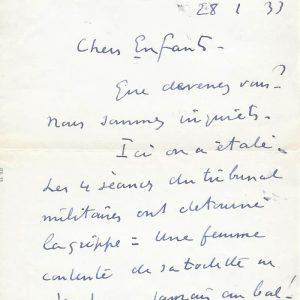 28 1 33
Chers Enfants -
Que devenez vous?
nous sommes inquiets -
Ici on a étalé -
Les 4 séances du tribunal
militaires ont détourné
la grippe = Une femme
contente de sa toilette ne
jamais au bal!